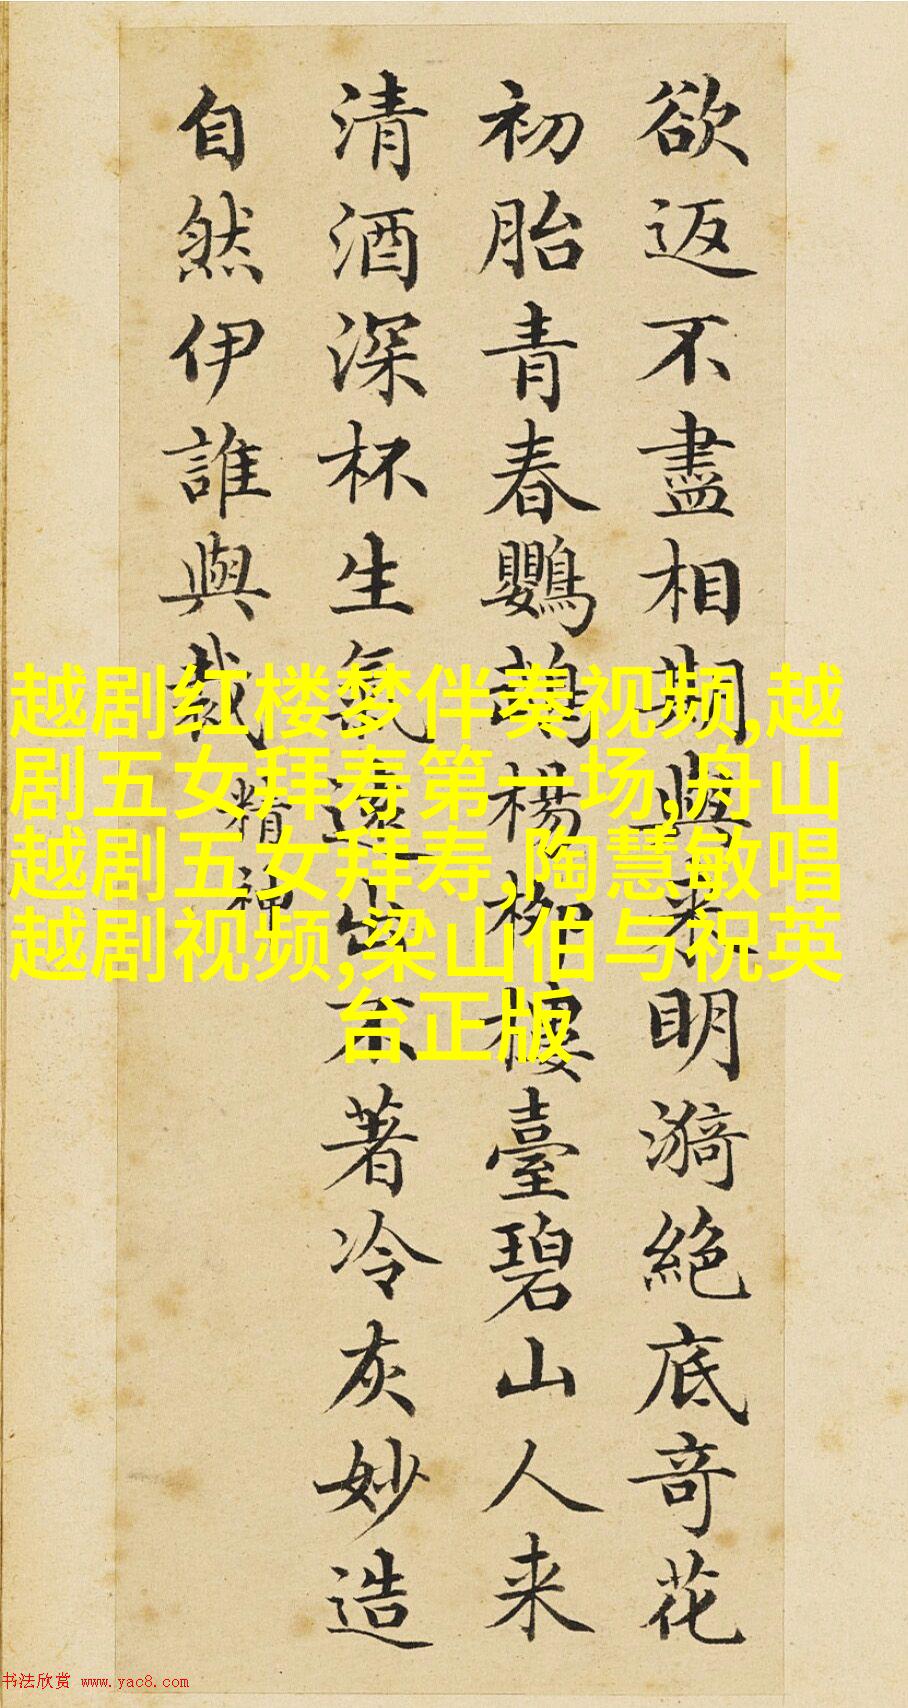 欲返不盡相期與来明漪絕底奇花
初胎青春鸚鵡楊柳樓臺碧山人来
清酒深杯生氣遠出不著冷灰妙造
自然伊誰與裁
精神
越剧红楼梦伴奏视频,越
剧五女拜寿第一场,舟山
越剧五女拜寿,陶慧敏唱
越剧视频,梁山伯与祝英
台正版
书法欣赏 www.yac8.com